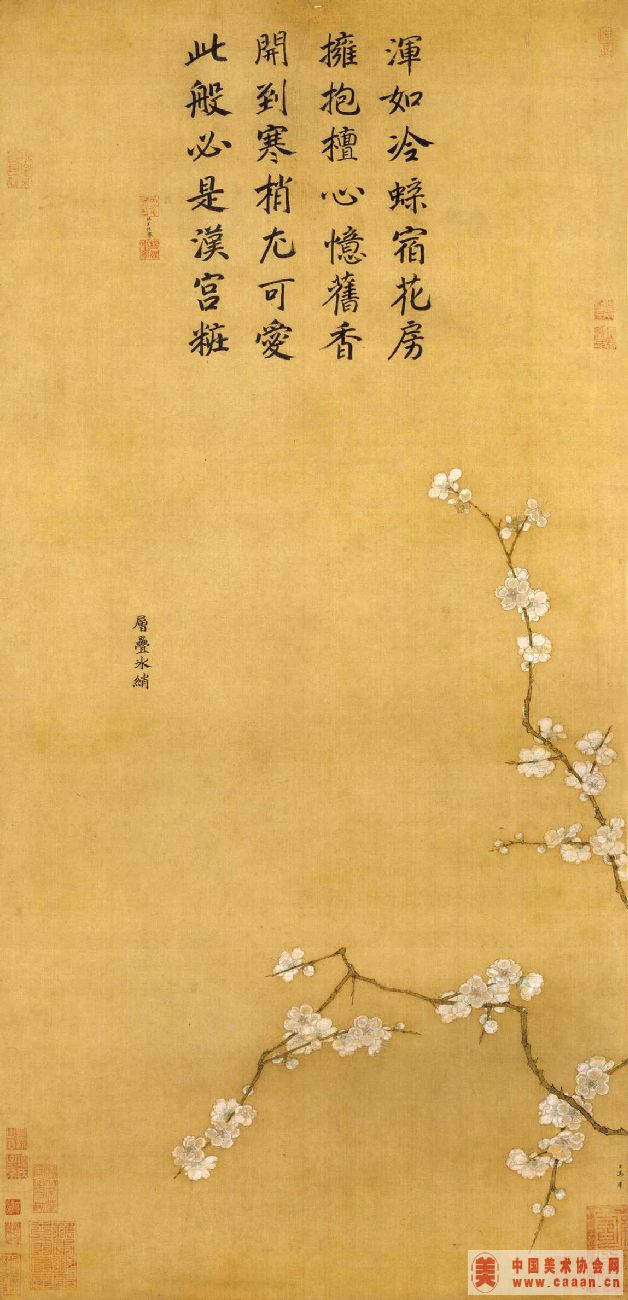 渾如冷蜨宿花房
擁抱檀心憶舊香
開到寒梢尤可愛
此般必是漢宮粧
層疊冰綃
中国美术协会网
www.caaan.cn